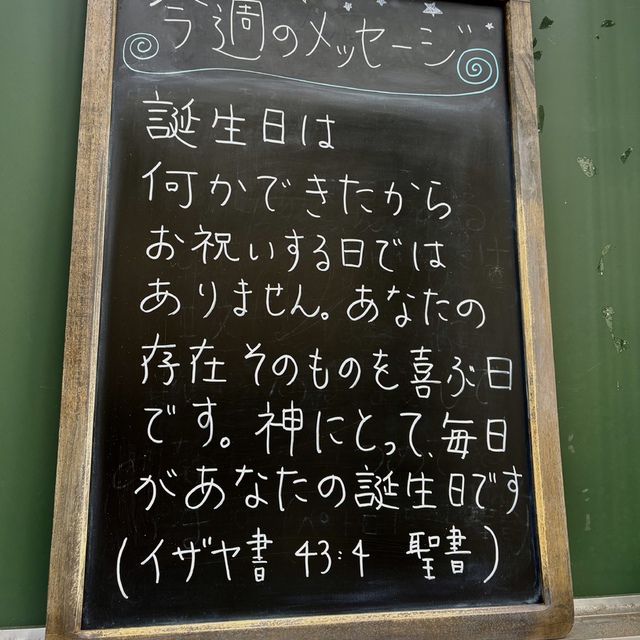 今週のメッセージ
誕生日は
何かできたから
お祝いする日では
ありません。あなたの
存在そのものを喜ぶ日
です。神にとって、毎日
があなたの誕生日です
(イザヤ書 43:4 聖書)